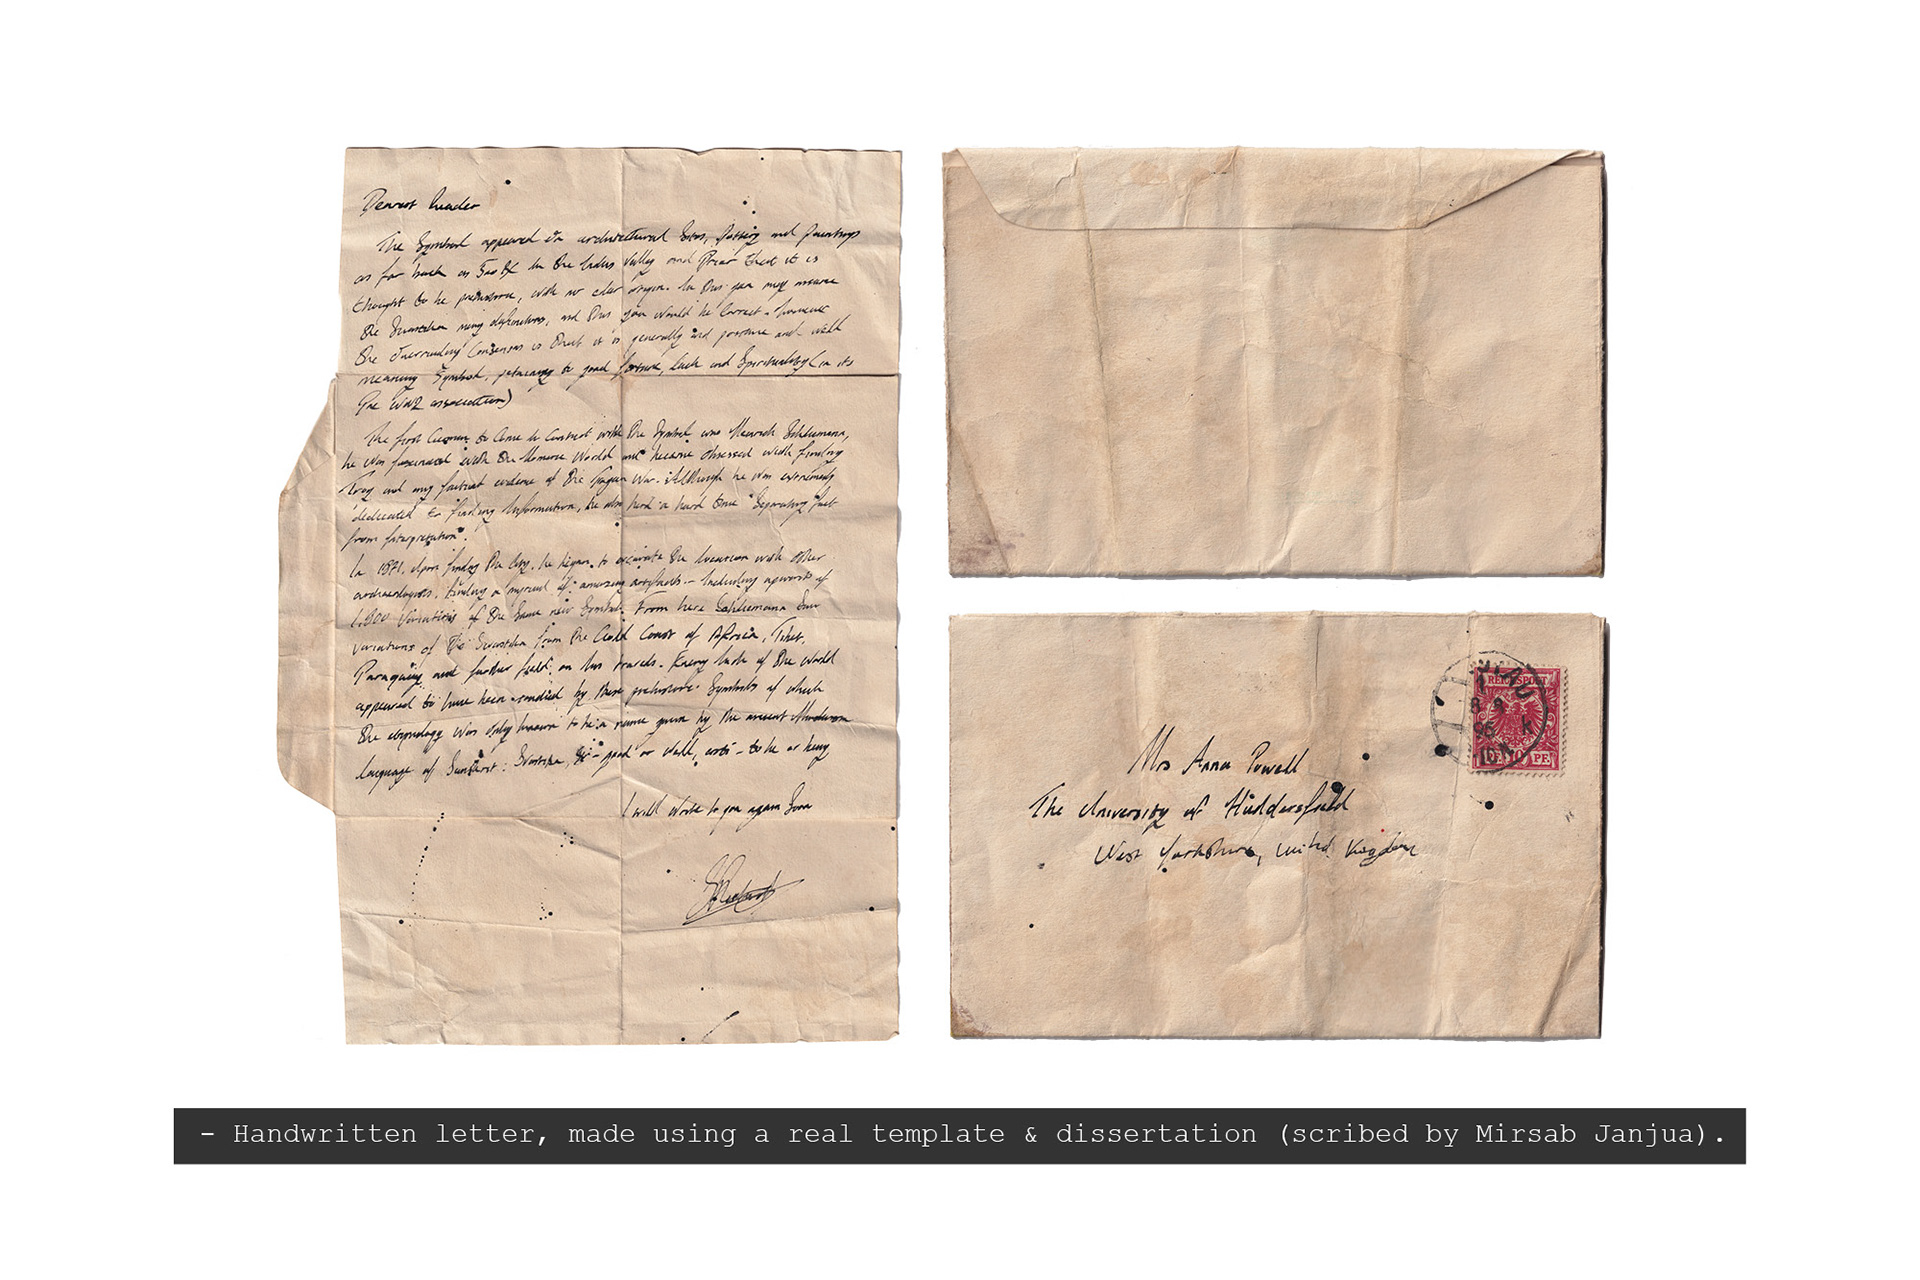 Dearest Reader
The Symbol appeared in architectural Sites, Pottery and Paintings
as far back as 5000 BC in the Indus Valley and Prior that it is
thought to be prehistoric, with no clear origin. In this you may
the Swastika
the Consensus is that it is generally and
meaning Symbol, pertaining to good fortune, luck and Spirituality (in its
Pre WW2 association)
The first German to Come in Contact with the Symbol was Heinrich Schliemann,
he was fascinated with the Homeric World and became obsessed with finding
Troy and any factual evidence of the Trojan War. Although he was extremely
dedicated to finding Information, he also had a hard time "Separating fact
from Interpretation".
In 1871, Upon finding the City, he began to excavate the location with other
archaeologists, finding a myriad of amazing artifacts - Including upwards of
1,800 Variations of the Same Symbol. From here Schliemann Saw
variations of the Swastika from the Gold Coast of Africa, Tibet,
Paraguay and further field on his travels. Every inch of the World
appeared to have been by these prehistoric Symbols of which
the etymology was only known to be a name given by the ancient
language of Sanskrit: Svastika, Su - good or well, asti - to be or being
I will write to you again Soon
Mrs Anna Powell
The University of Huddersfield
West Yorkshire, United Kingdom
REICHSPOST
- Handwritten letter, made using a real template & dissertation (scribed by Mirsab Janjua).